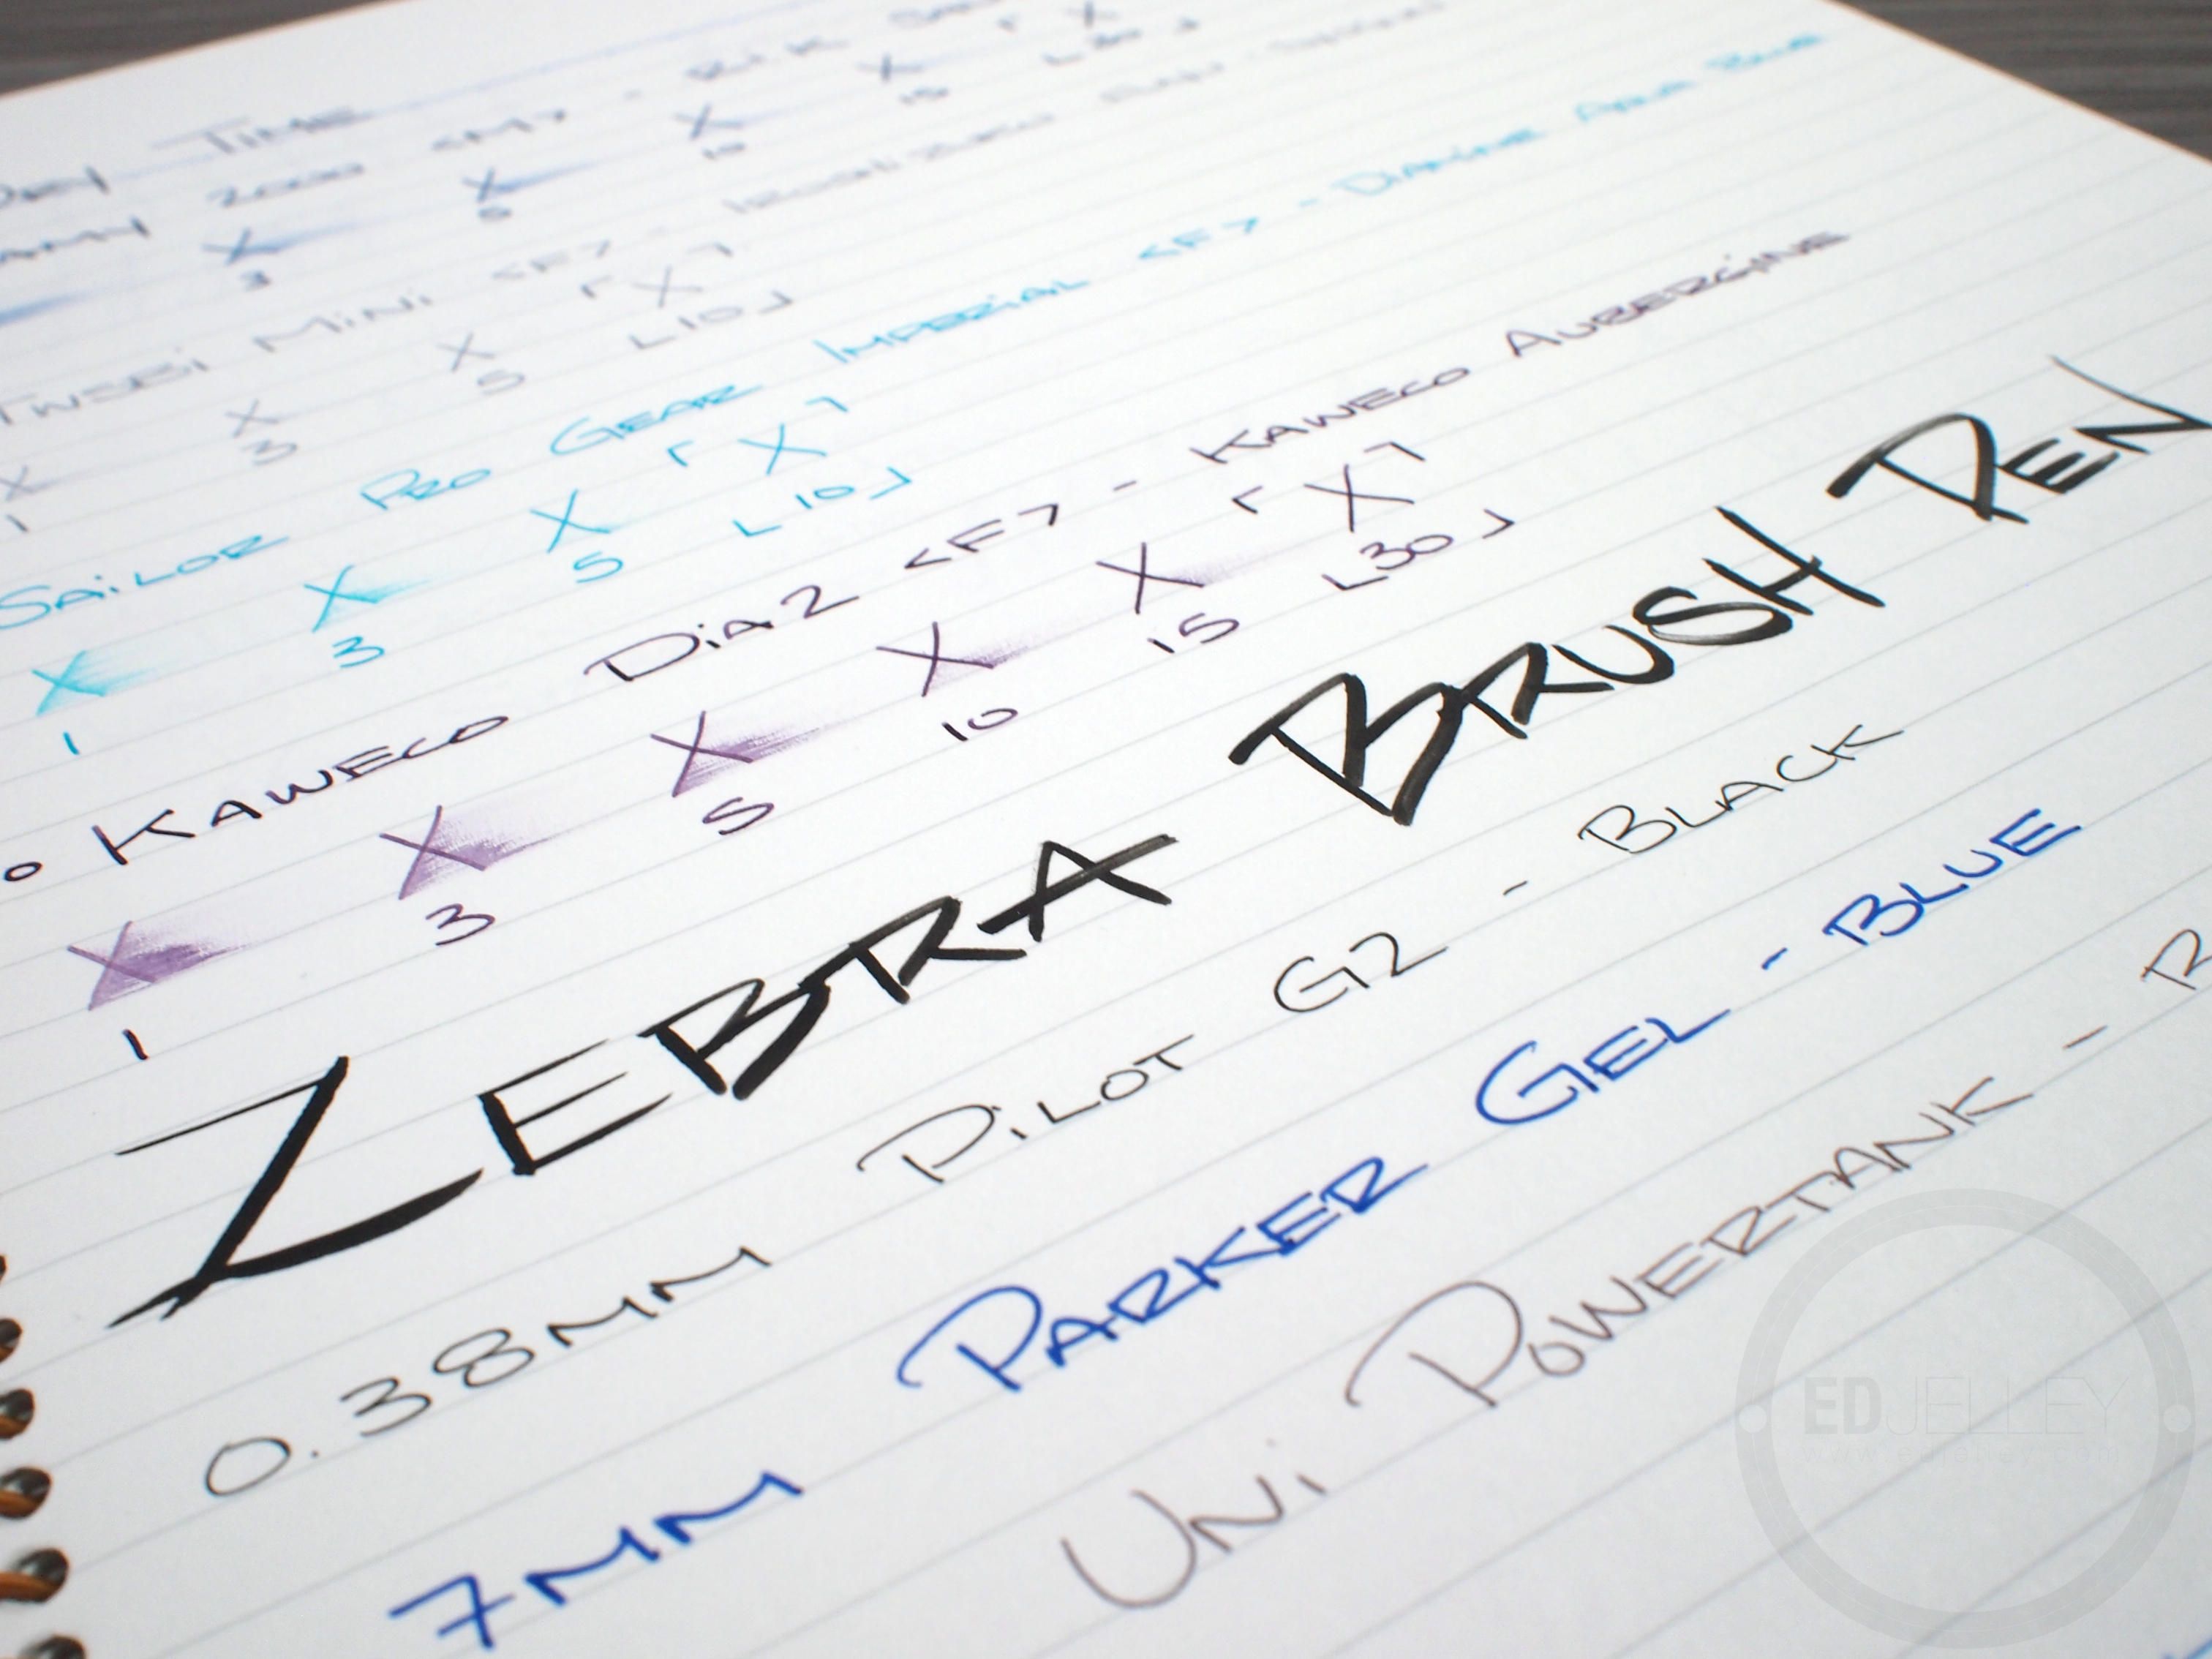 Dry Time
2000 <M> -
X X X X X
3 5 10 15 ⌊30⌋
TWSBI Mini <F> -
X X X ⌈X⌉
1 3 5 ⌊10⌋
Sailor Pro Gear Imperial <F> - Diamine Aqua Blue
X X X ⌈X⌉
1 3 5 ⌊10⌋
o Kaweco Dia2 <F> - Kaweco Aubergine
X X X X X ⌈X⌉
1 3 5 10 15 ⌊30⌋
Zebra Brush Pen
0.38mm Pilot G2 - Black
7mm Parker Gel - Blue
Uni Powertank -
EDJELLEY